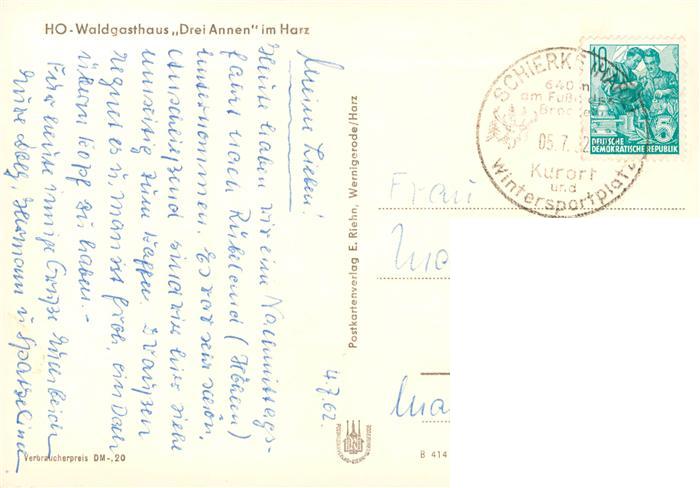 HO-Waldgasthaus „Drei Annen" im Harz
4.7.62.
Meine Lieben!
Heute haben wir eine Nachmittags-
fahrt nach Rübeland (Höhlen)
unternommen. Es war sehr schön.
Anschließend sind wir hier
zum Kaffee. Draußen
regnet es u. man ist froh, ein Dach
überm Kopf zu haben.-
Für heute innige Grüße
Eure Hermann u.
Verbraucherpreis DM-,20
Postkartenverlag E. Riehn, Wernigerode/Harz
B 414
SCHIERKE (HARZ)
640 m
am Fuße des
Brocken
05.7.62
Kurort
und
Wintersportplatz
10
5
DEUTSCHE
DEMOKRATISCHE REPUBLIK
Frau